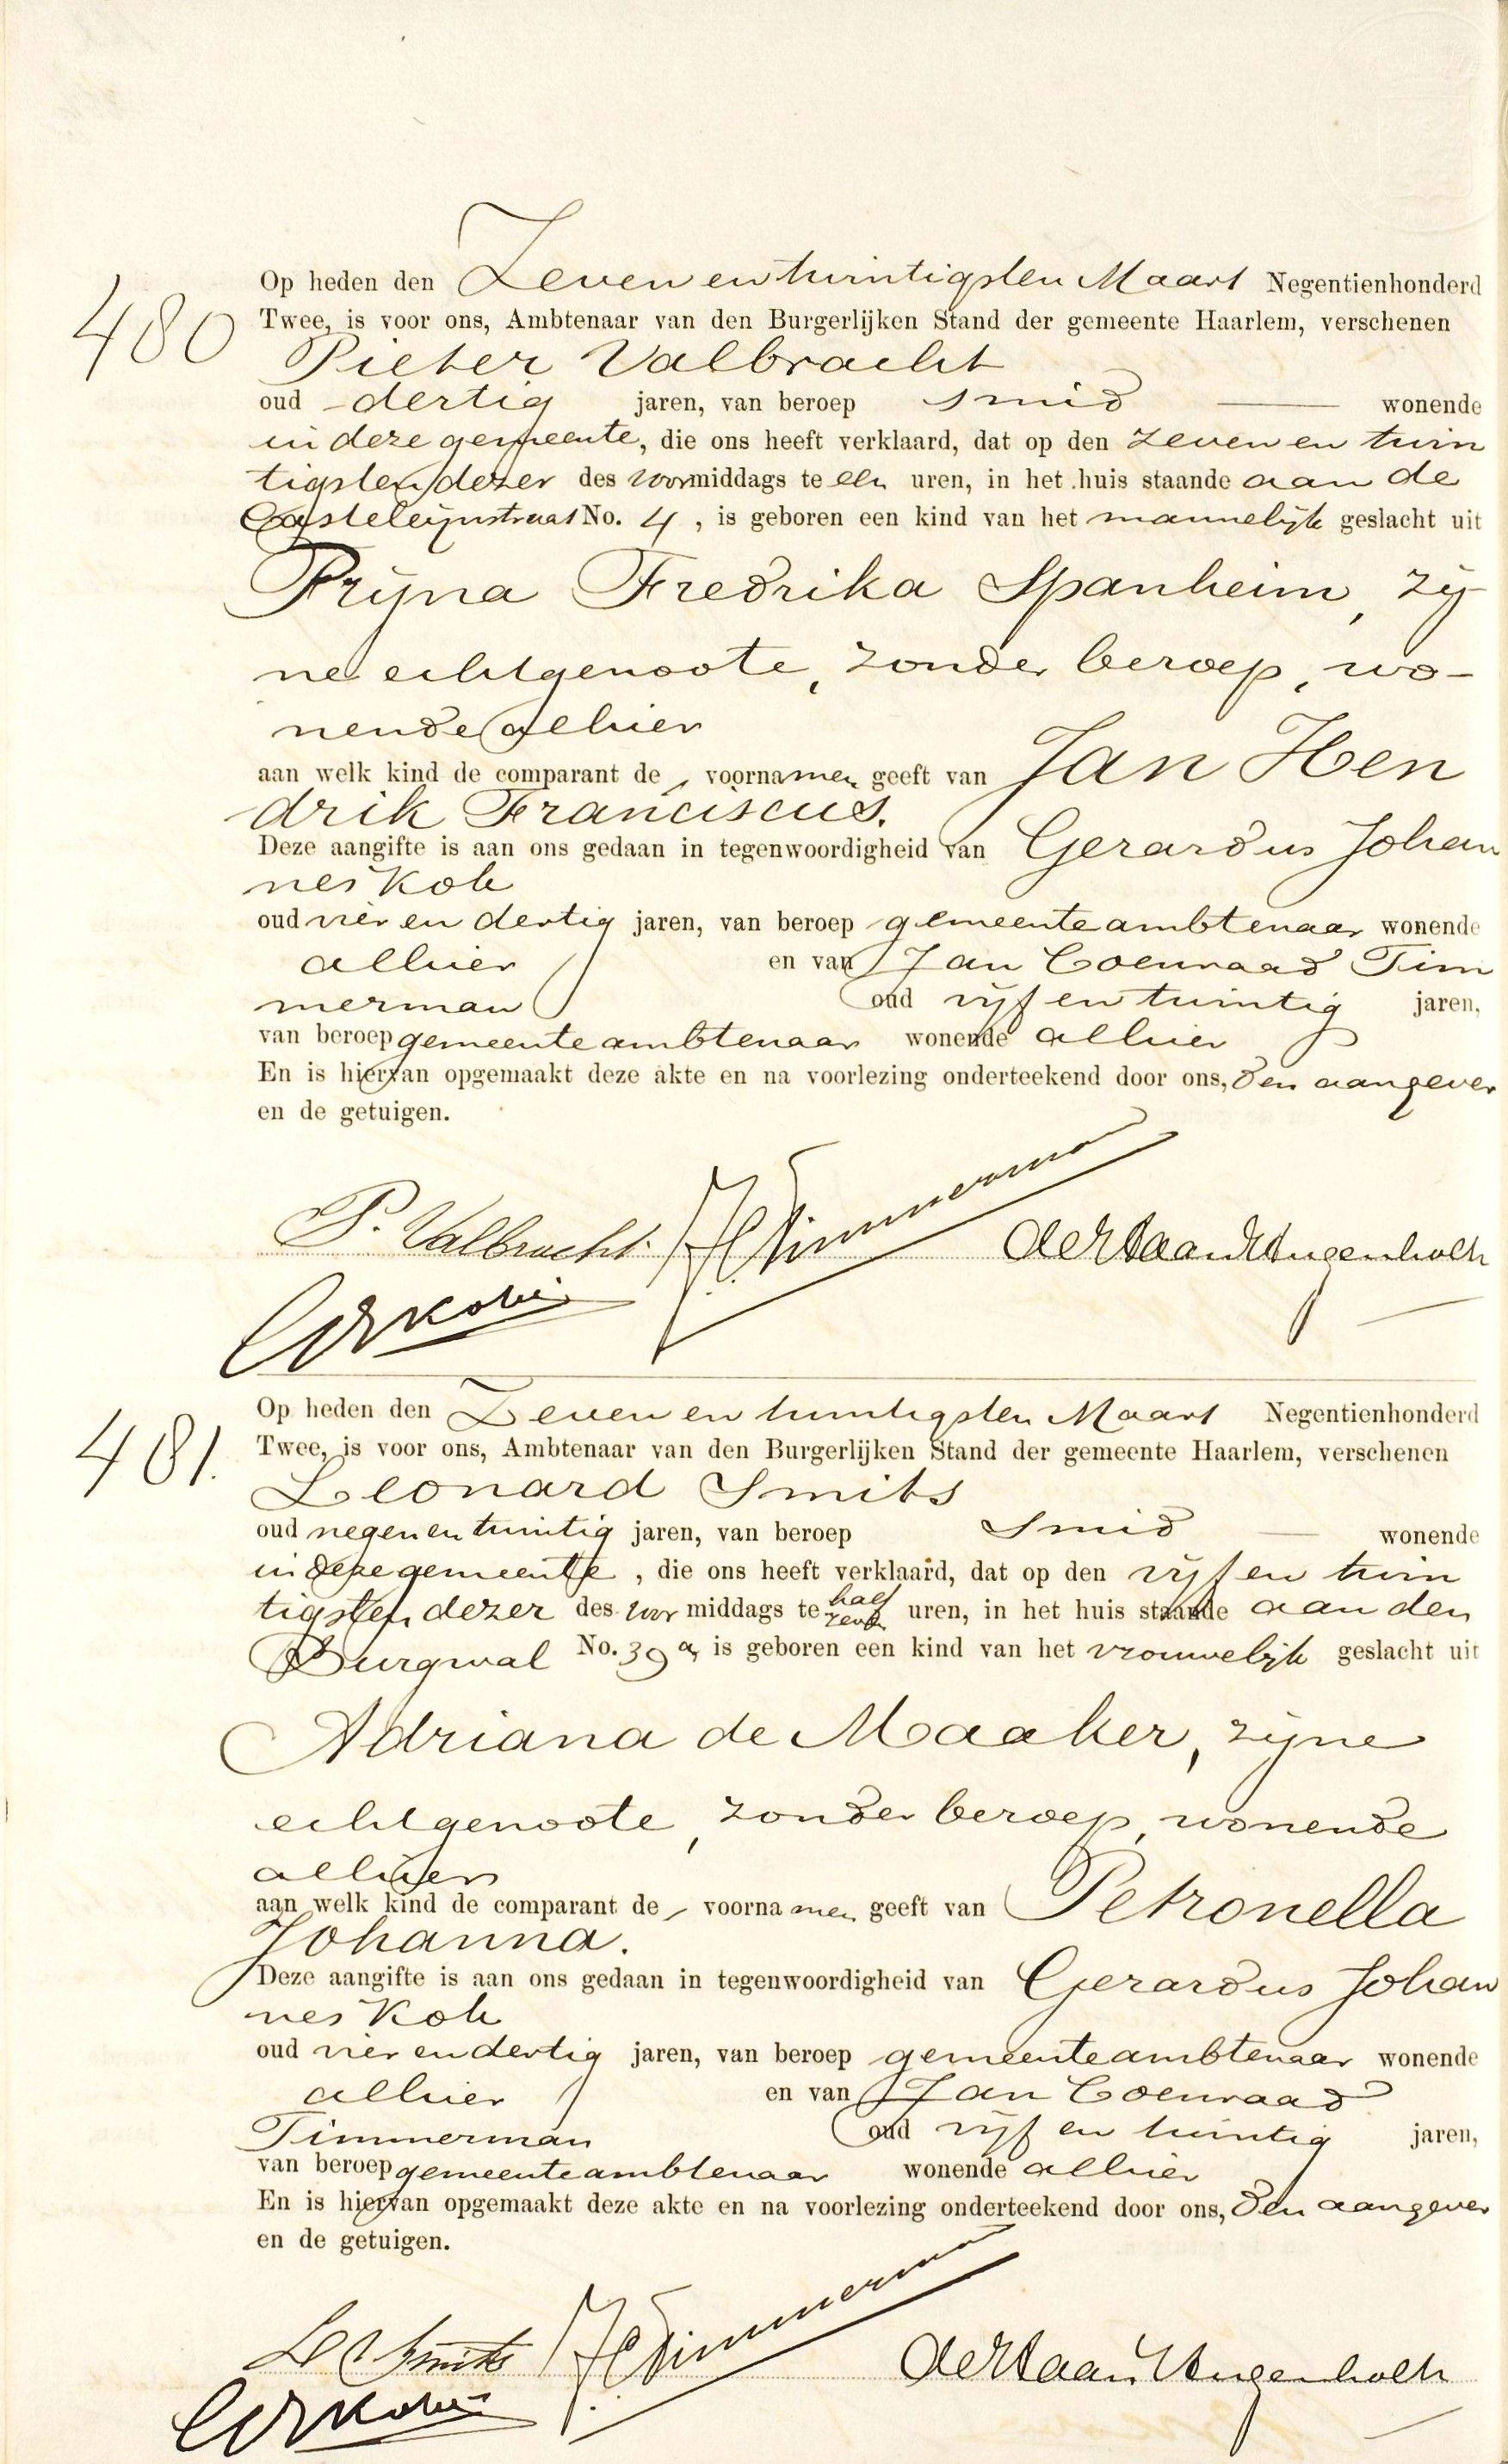 480
Op heden den Zeven en twintigsten Maart Negentienhonderd
Twee, is voor ons, Ambtenaar van den Burgerlijken Stand der gemeente Haarlem, verschenen
Pieter Valbracht
oud dertig jaren, van beroep smid — wonende
in deze gemeente, die ons heeft verklaard, dat op den zeven en twin
tigsten dezer des voormiddags te een uren, in het huis staande aan de
Casteleijnstraat No. 4, is geboren een kind van het mannelijk geslacht uit
Prijna Fredrika Spanheim, zij-
ne echtgenoote, zonder beroep, wo-
nende alhier
aan welk kind de voornamen geeft van Jan Hen
drik Franciscus.
Deze aangifte is aan ons gedaan in tegenwoordigheid van Gerardus Johan
nes Kok
oud vier en dertig jaren, van beroep gemeenteambtenaar wonende
alhier en van Jan Coenraad Tim
merman oud vijf en twintig jaren,
van beroep gemeenteambtenaar wonende alhier
En is hiervan opgemaakt deze akte en na voorlezing onderteekend door ons, den aangever
en de getuigen.
P. Valbracht. JCTimmerman
481.
Op heden den Zeven en twintigsten Maart Negentienhonderd
Twee, is voor ons, Ambtenaar van den Burgerlijken Stand der gemeente Haarlem, verschenen
Leonard Smits
oud negen en twintig jaren, van beroep smid — wonende
in deze gemeente, die ons heeft verklaard, dat op den vijf en twin
tigsten dezer des voormiddags te half zeven uren, in het huis staande aan den
Burgwal No. 39a, is geboren een kind van het vrouwelijk geslacht uit
Adriana de Maaker, zijne
echtgenoote, zonder beroep, wonende
alhier
aan welk kind de comparant de voornamen geeft van Petronella
Johanna.
Deze aangifte is aan ons gedaan in tegenwoordigheid van Gerardus Johan
nes Kok
oud vier en dertig jaren, van beroep gemeenteambtenaar wonende
alhier en van Jan Coenraad
Timmerman oud vijf en twintig jaren,
van beroep gemeenteambtenaar wonende alhier
En is hiervan opgemaakt deze akte en na voorlezing onderteekend door ons, den aangever
en de getuigen.
L Smits JCTimmerman